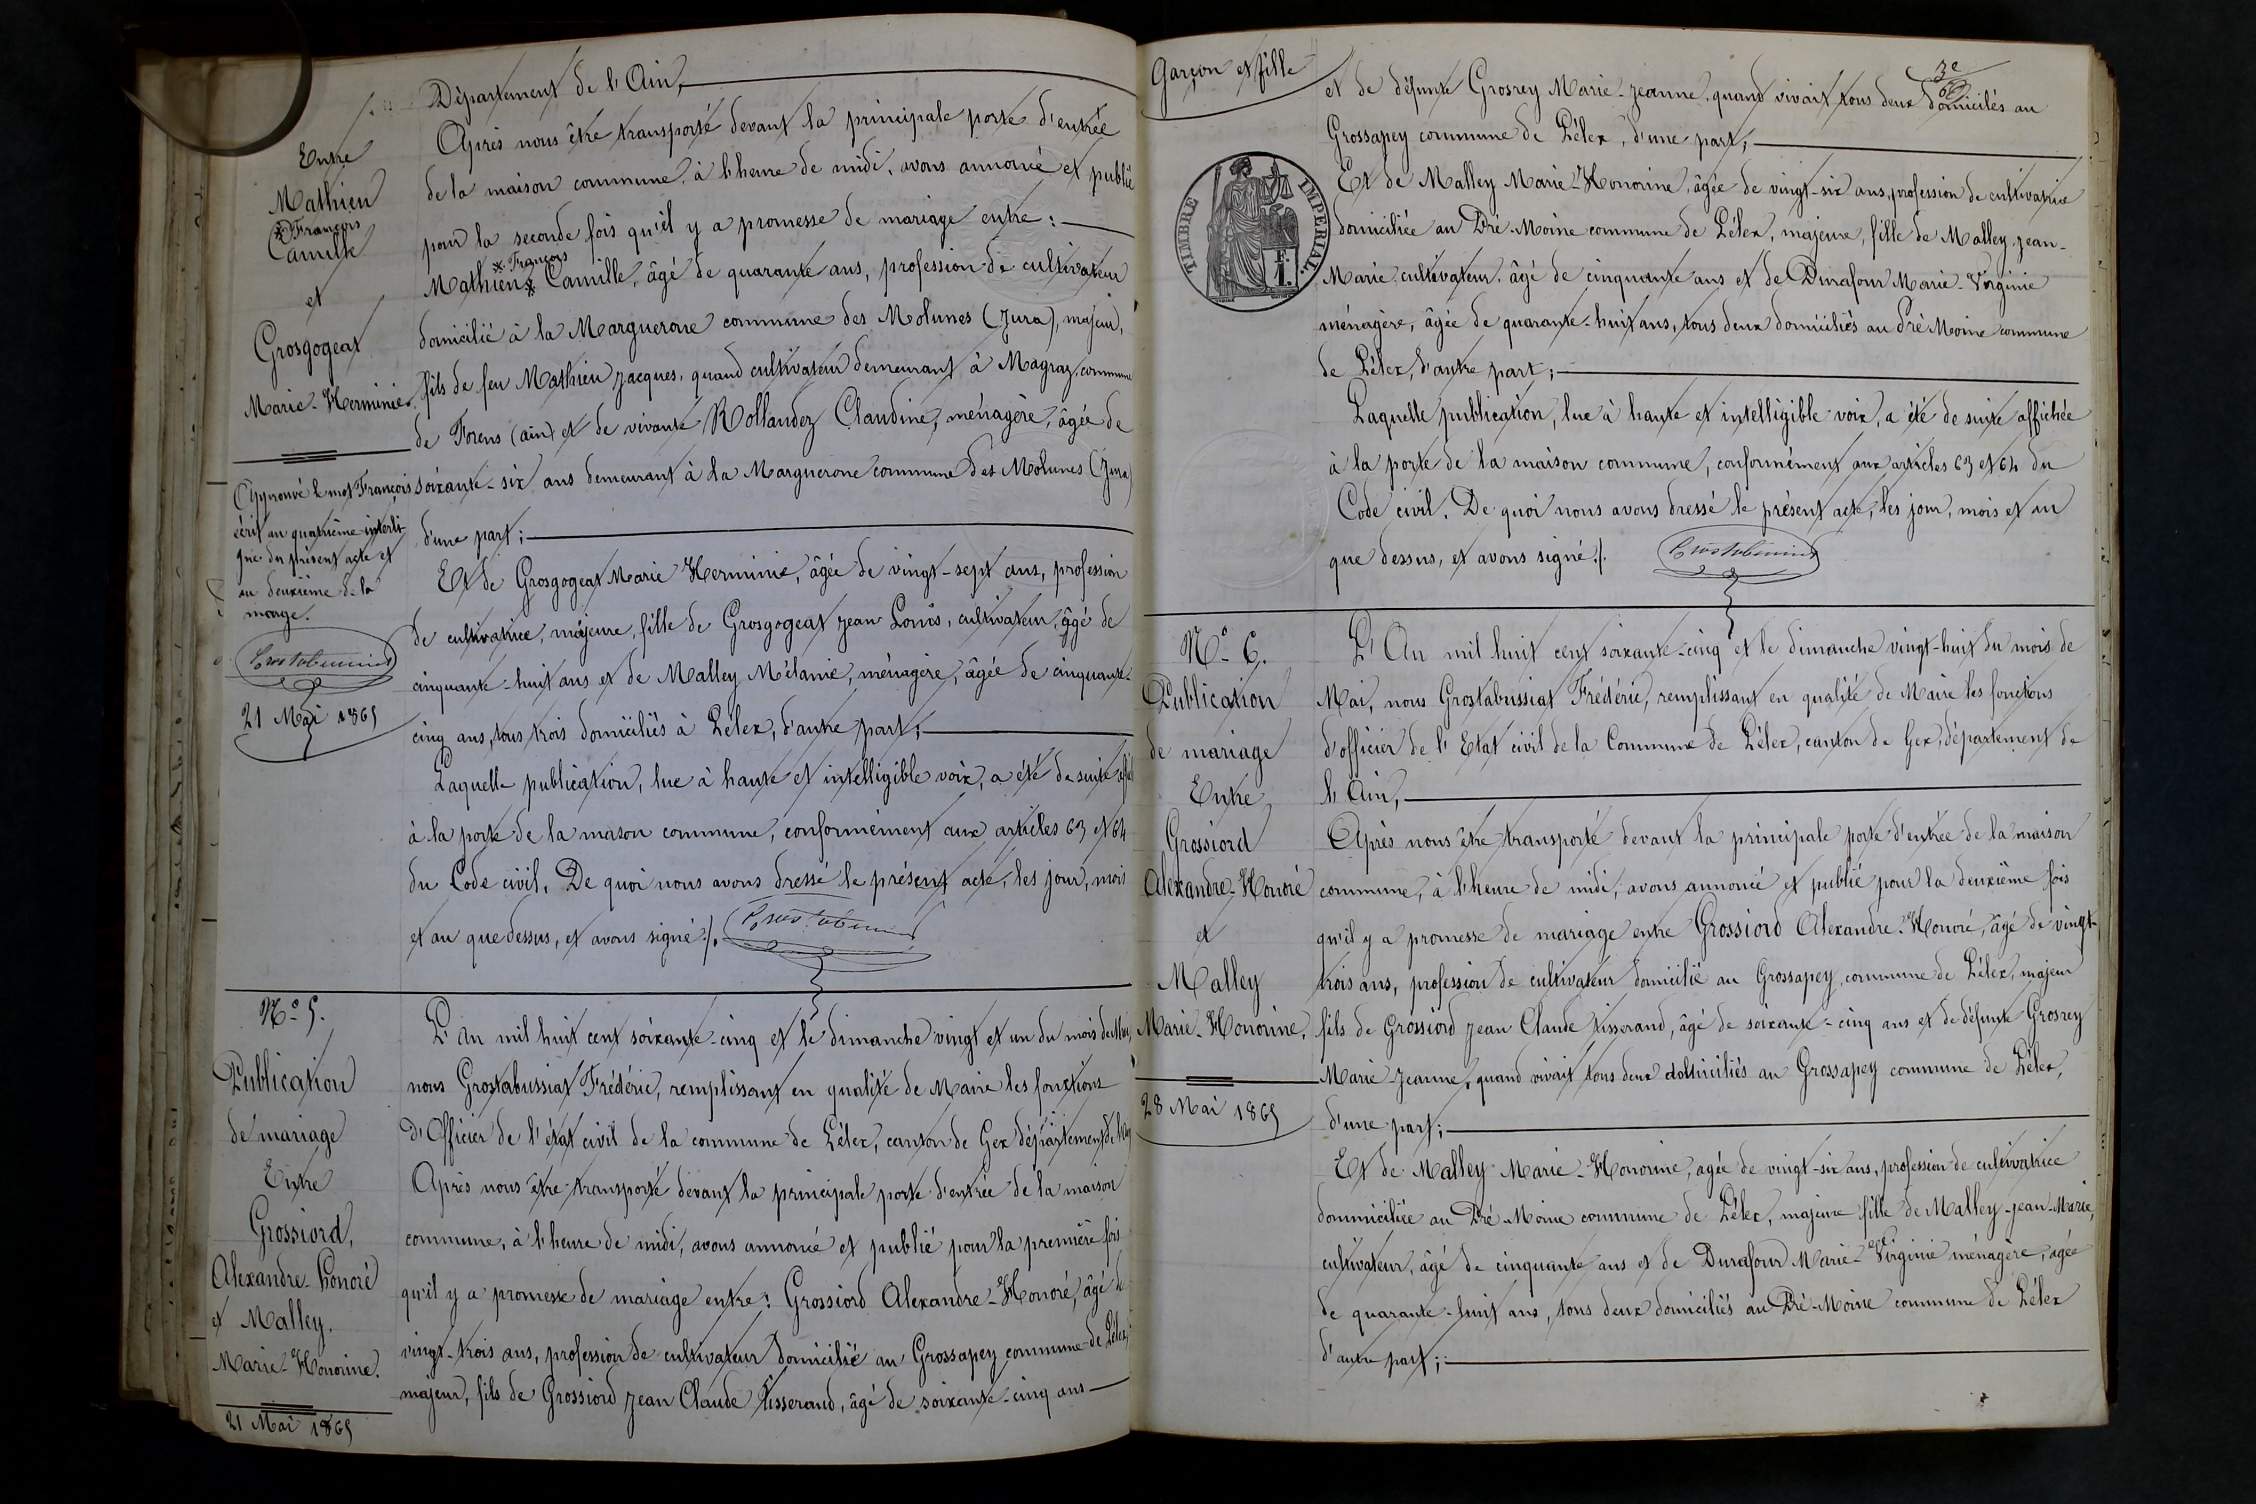 Département de l'Ain,
Après nous être transporté devant la principale porte d'entrée
de la maison commune, à l'heure de midi, avons annoncé et publié
pour la seconde fois qu'il y a promesse de mariage entre :
* François
Mathieu * Camille, âgé de quarante ans, profession de cultivateur
domicilié à la Marguerone commune des Molunes (Jura), majeur,
fils de feu Mathieu Jacques, quand cultivateur demeurant à Magraz, commune
de Forens (ain) et de vivante Rollandez Claudine, ménagère, âgée de
soixante-six ans demeurant à la Marguerone commune des Molunes (Jura)
d'une part ;
Et de Grosgogeat Marie Herminie, âgée de vingt-sept ans, profession
de cultivatrice, majeure, fille de Grosgogeat Jean Louis, cultivateur, âgé de
cinquante-huit ans et de Malley Mélanie, ménagère, âgée de cinquante-
cinq ans, tous trois domiciliés à Lélex, d'autre part ;
Laquelle publication, lue à haute et intelligible voix, a été de suite
à la porte de la maison commune, conformément aux articles 63 et 64
du Code civil. De quoi nous avons dressé le présent acte, les jour, mois
et an que dessus, et avons signé ./.
Entre
Mathieu
* François
Camille
et
Grosgogeat
Marie-Herminie.
Approuvé le mot François
écrit au quatrième interli-
gne du présent acte et
au deuxième de la
marge.
21 Mai 1865
N° 5.
Publication
de mariage
Entre
Grossiord,
Alexandre-honoré
et Malley.
Marie-Honorine.
21 Mai 1865
L'an mil huit cent soixante-cinq et le dimanche vingt et un du mois de Mai,
nous Grostabussiat Frédéric, remplissant en qualité de Maire les fonctions
d'Officier de l'état civil de la commune de Lélex, canton de Gex département de l'Ain
Après nous être transporté devant la principale porte d'entrée de la maison
commune, à l'heure de midi, avons annoncé et publié pour la première fois
qu'il y a promesse de mariage entre : Grossiord Alexandre-Honoré, âgé de
vingt-trois ans, profession de cultivateur domicilié au Grossapey commune de Lélex,
majeur, fils de Grossiord Jean Claude tisserand, âgé de soixante-cinq ans
Garçon et fille
3e
TIMBRE IMPERIAL.
F.
1.
et de défunte Grosrey Marie-Jeanne, quand vivait tous deux domiciliés au
Grossapey commune de Lélex, d'une part ;
Et de Malley Marie-Honorine, âgée de vingt-six ans, profession de cultivatrice
domiciliée au Pré-Moine commune de Lélex, majeure, fille de Malley Jean-
Marie, cultivateur, âgé de cinquante ans et de Durafour Marie-Virginie
ménagère, âgée de quarante-huit ans, tous deux domiciliés au Pré Moine commune
de Lélex, d'autre part ;
Laquelle publication, lue à haute et intelligible voix, a été de suite affichée
à la porte de la maison commune, conformément aux articles 63 et 64 du
Code civil. De quoi nous avons dressé le présent acte, les jour, mois et an
que dessus, et avons signé ./.
N° 6.
Publication
de mariage
Entre
Grossiord
Alexandre-Honoré
et
Malley
Marie-Honorine,
28 Mai 1865
L'An mil huit cent soixante-cinq et le dimanche vingt-huit du mois de
Mai, nous Grostabussiat Frédéric, remplissant en qualité de Maire les fonctions
d'officier de l'Etat civil de la Commune de Lélex, canton de Gex, département de
l'Ain,
Après nous être transporté devant la principale porte d'entrée de la maison
commune, à l'heure de midi, avons annoncé et publié pour la deuxième fois
qu'il y a promesse de mariage entre Grossiord Alexandre-Honoré, âgé de vingt-
trois ans, profession de cultivateur domicilié au Grossapey, commune de Lélex, majeur
fils de Grossiord Jean Claude tisserand, âgé de soixante-cinq ans et de défunte Grosrey
Marie Jeanne, quand vivait tous deux domiciliés au Grossapey commune de Lélex,
d'une part ;
Et de Malley Marie-Honorine, agée de vingt-six ans, profession de cultivatrice
dommiciliée au Pré-Moine commune de Lélex, majeure fille de Malley-Jean-Marie,
cultivateur, âgé de cinquante ans et de Durafour Marie-Virginie ménagère, âgée
de quarante-huit ans, tous deux domiciliés au Pré-Moine commune de Lélex
d'autre part ;